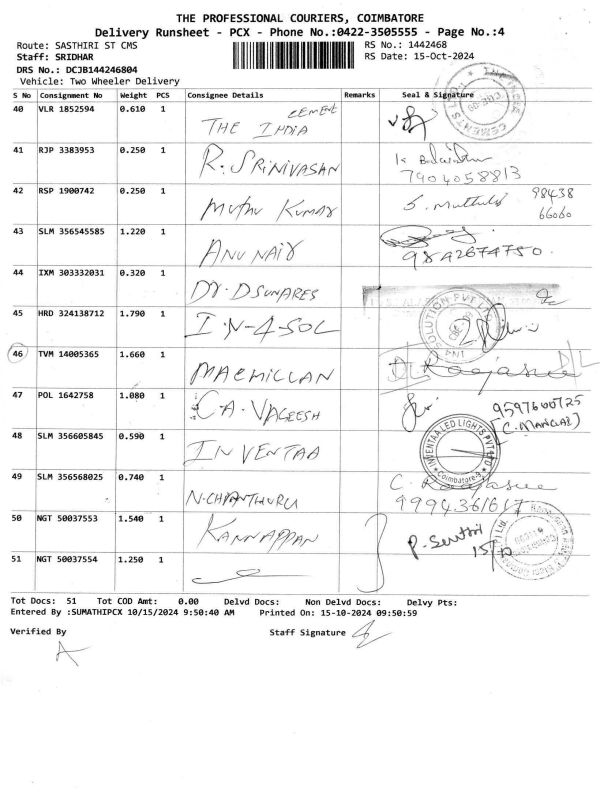 THE PROFESSIONAL COURIERS, COIMBATORE
Delivery Runsheet - PCX - Phone No.:0422-3505555 - Page No.:4
Route: SASTHIRI ST CMS RS No.: 1442468
Staff: SRIDHAR RS Date: 15-Oct-2024
DRS No.: DCJB144246804
Vehicle: Two Wheeler Delivery
S No Consignment No Weight PCS Consignee Details Remarks Seal & Signature
40 VLR 1852594 0.610 1 THE INDIA CEMENT
41 RJP 3383953 0.250 1 R. SRINIVASAN
7904058813
42 RSP 1900742 0.250 1 Muthu Kumar 98438
66060
43 SLM 356545585 1.220 1 ANU NAIR 9842674750.
44 IXM 303332031 0.320 1 Dr. DSUNARES
45 HRD 324138712 1.790 1 IN-4-SOL
SOLUTION PVT
46 TVM 14005365 1.660 1 MACMILLAN
47 POL 1642758 1.080 1 C.A. VAGEESH 9597600725
48 SLM 356605845 0.590 1 INVENTAA
INVENTAA LED LIGHTS PVT LTD
Coimbatore-9
49 SLM 356568025 0.740 1
9994361617
50 NGT 50037553 1.540 1 KANNAPPAN
P. Senthil
51 NGT 50037554 1.250 1
Tot Docs: 51 Tot COD Amt: 0.00 Delvd Docs: Non Delvd Docs: Delvy Pts:
Entered By :SUMATHIPCX 10/15/2024 9:50:40 AM Printed On: 15-10-2024 09:50:59
Verified By Staff Signature